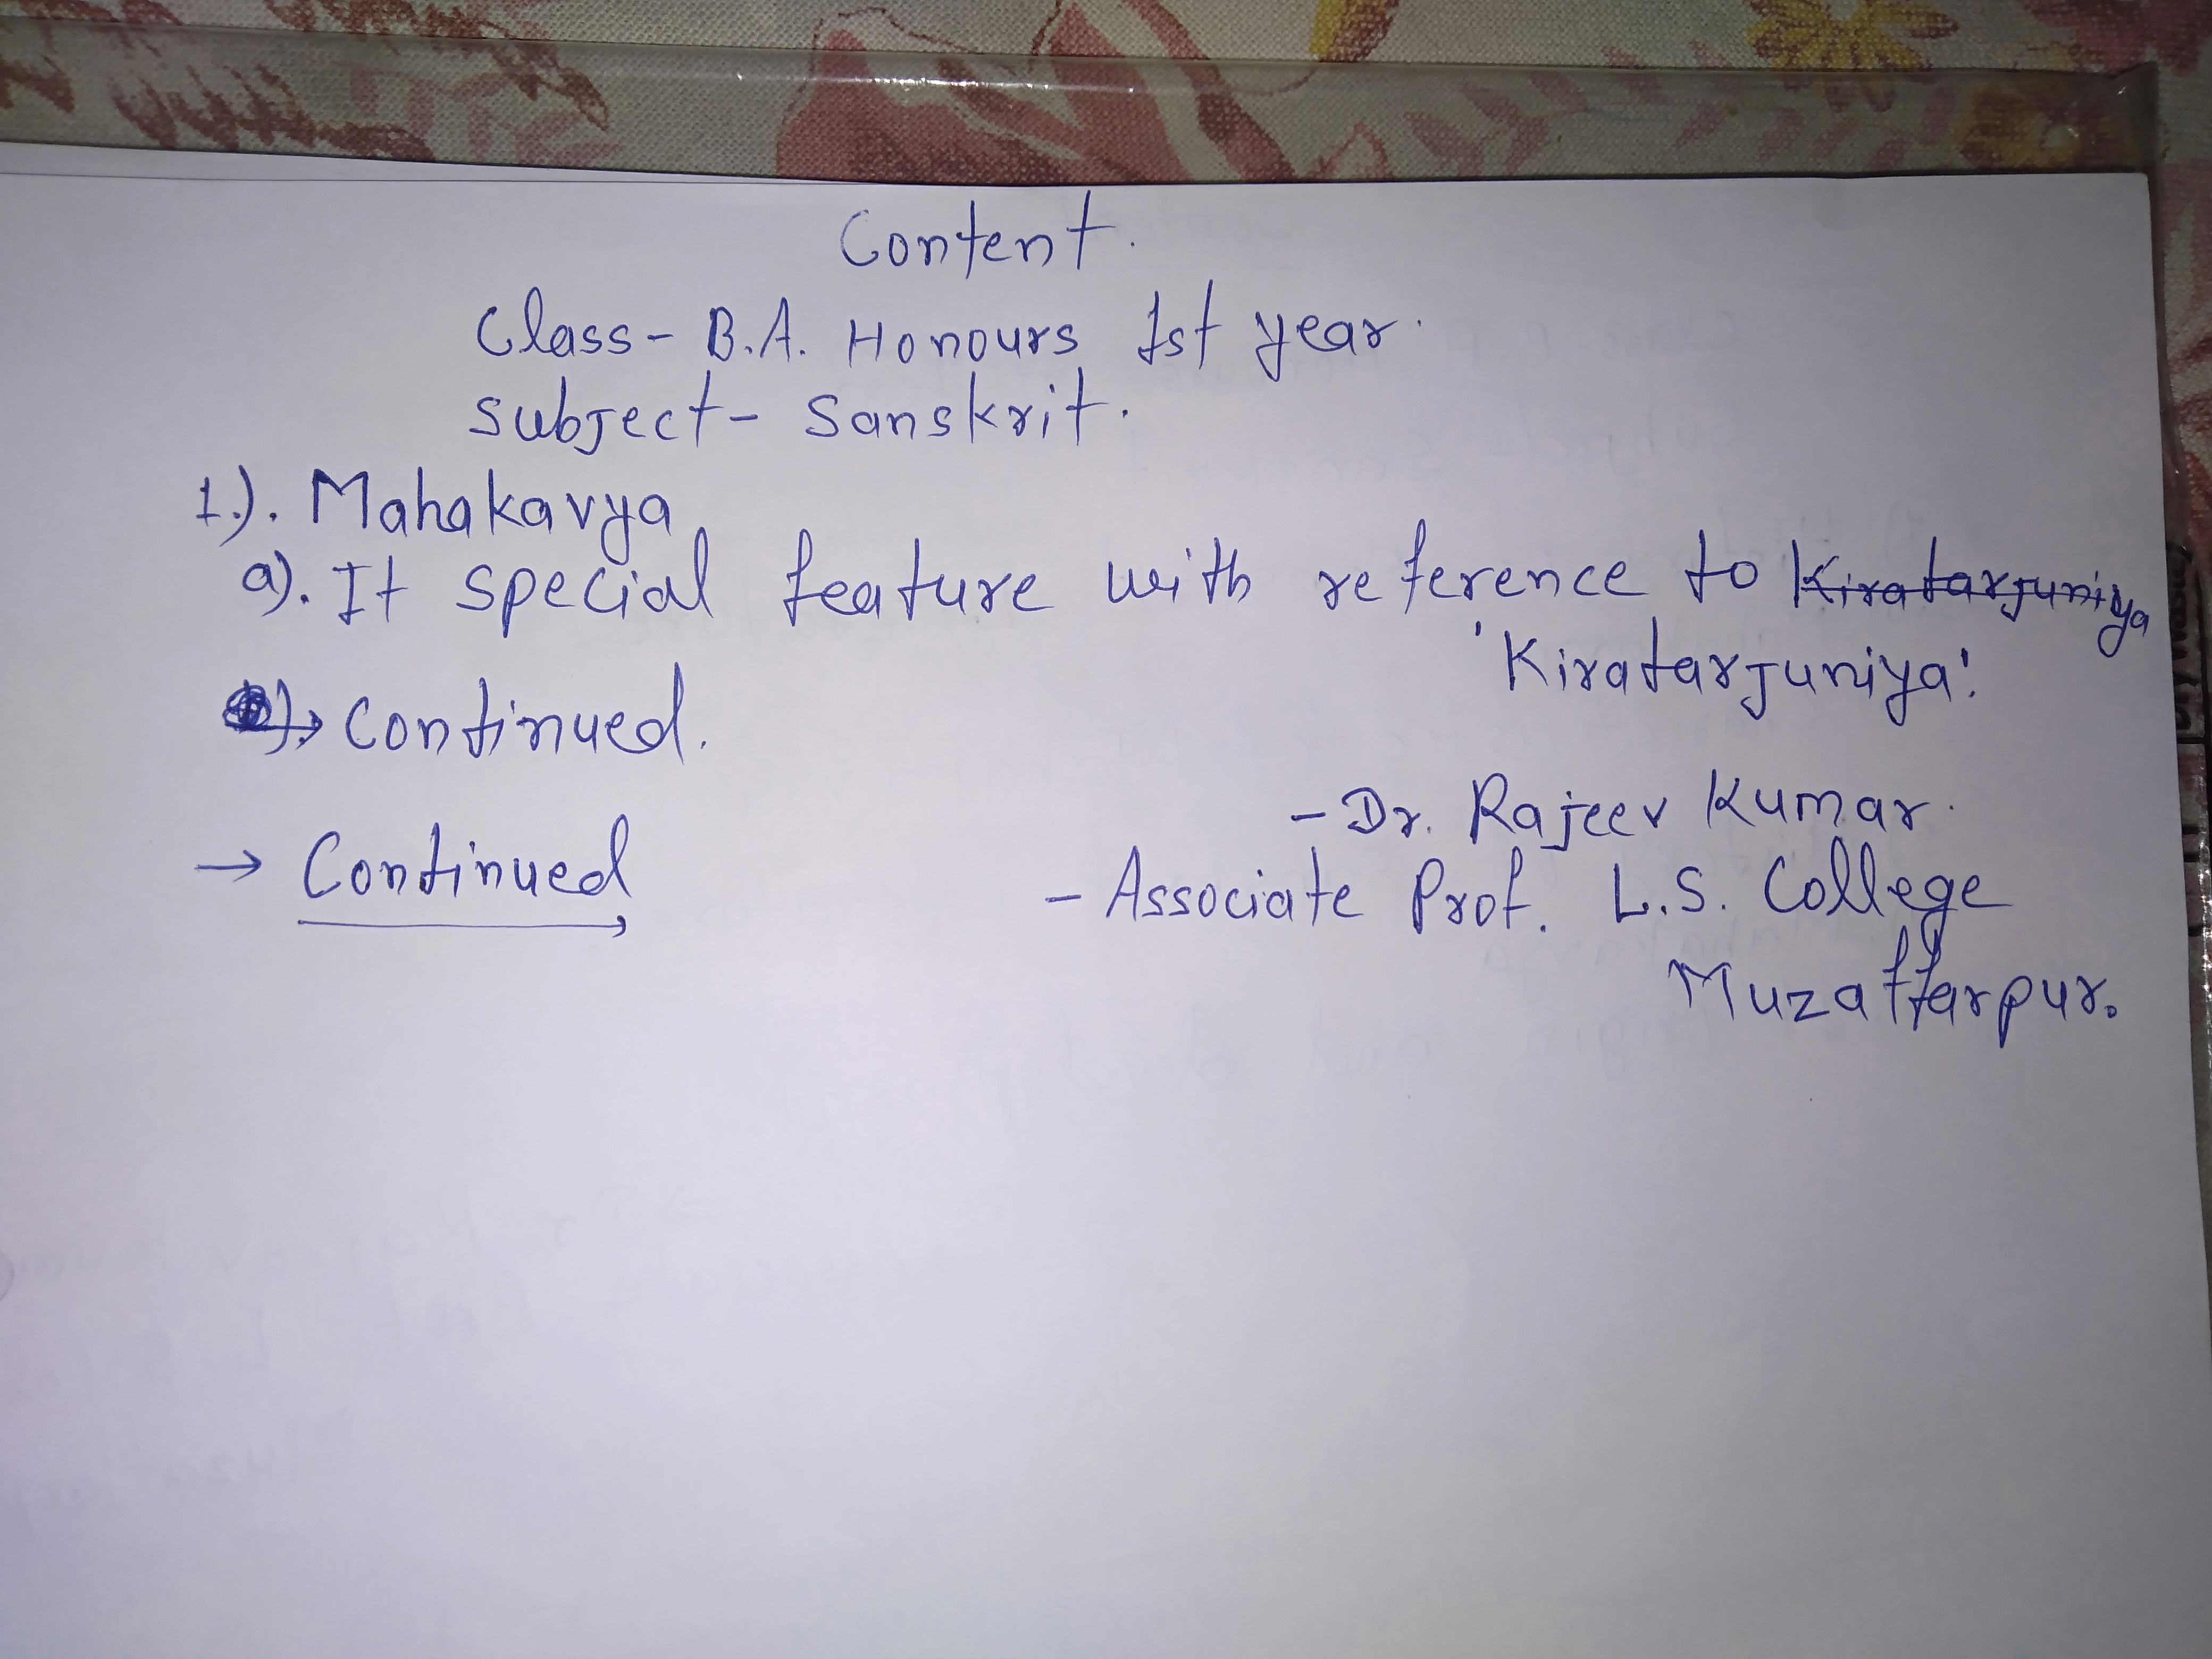 Content.
Class- B.A. Honours 1st year.
Subject- Sanskrit.
1.). Mahakavya
a). It special feature with reference to Kiratarjuniya
'Kiratarjuniya'.
→ Continued.
- Dr. Rajeev Kumar.
→ Continued
- Associate Prof. L.S. College
Muzaffarpur.